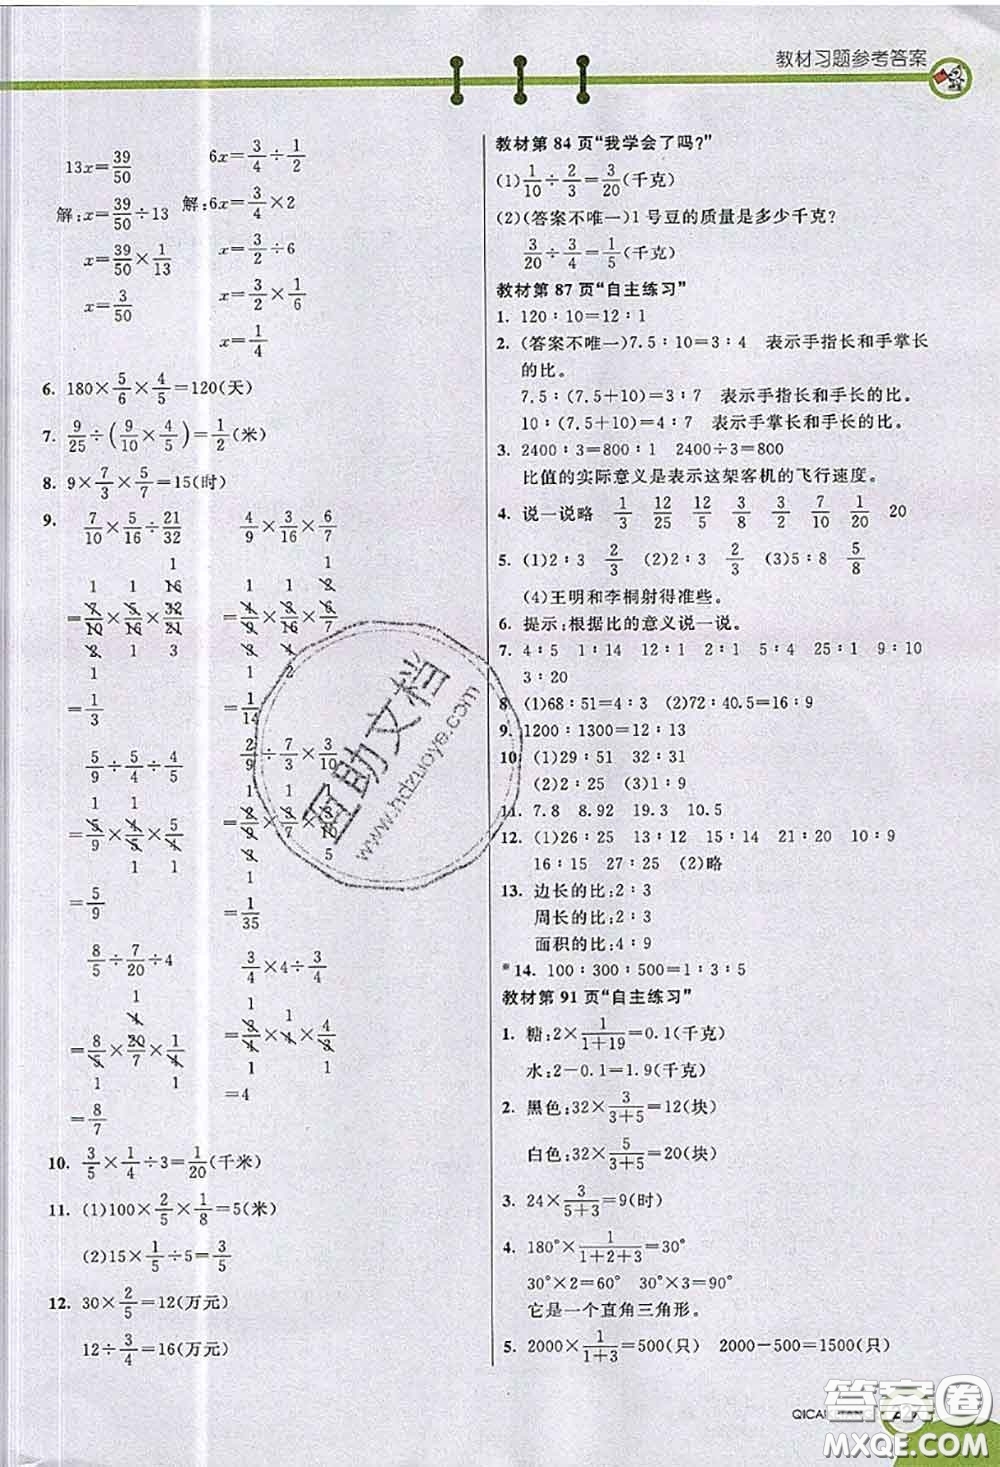 教材习题参考答案
13x=39/50
解:x=39/50÷13
x=39/50×1/13
x=3/50
6x=3/4÷1/2
解:6x=3/4×2
x=3/2÷6
x=3/2×1/6
x=1/4
6. 180×5/6×4/5=120(天)
7. 9/25÷(9/10×4/5)=1/2(米)
8. 9×7/3×5/7=15(时)
9. 7/10×5/16÷21/32
=7/10×5/16×32/21
=1/3
4/9×3/16×6/7
=4/9×3/16×6/7
=1/14
5/9÷5/4÷4/5
=5/9×4/5×5/4
=5/9
2/9÷7/3×3/10
=1/35
8/5÷7/20÷4
=8/5×20/7×1/4
=8/7
3/4×4÷3/4
=3/4×4×4/3
=4
10. 3/5×1/4÷3=1/20(千米)
11. (1)100×2/5×1/8=5(米)
(2)15×1/5÷5=3/5
12. 30×2/5=12(万元)
12÷3/4=16(万元)
教材第 84 页“我学会了吗?”
(1)1/10÷2/3=3/20(千克)
(2)(答案不唯一)1 号豆的质量是多少千克?
3/20÷3/4=1/5(千克)
教材第 87 页“自主练习”
1. 120∶10=12∶1
2. (答案不唯一)7.5∶10=3∶4 表示手指长和手掌长
的比。
7.5∶(7.5+10)=3∶7 表示手指长和手长的比。
10∶(7.5+10)=4∶7 表示手掌长和手长的比。
3. 2400∶3=800∶1 2400÷3=800
比值的实际意义是表示这架客机的飞行速度。
4. 说一说略 1/3 12/25 12/5 3/8 3/2 7/10 1/20 20
5. (1)2∶3 2/3 (2)2∶3 2/3 (3)5∶8 5/8
(4)王明和李桐射得准些。
6. 提示:根据比的意义说一说。
7. 4∶5 1∶14 12∶1 2∶1 5∶4 25∶1 9∶10
3∶20
8 (1)68∶51=4∶3 (2)72∶40.5=16∶9
9. 1200∶1300=12∶13
10. (1)29∶31 32∶31
(2)2∶1 (3)1∶2
11. 7.8 8.92 19.3 10.5
12. (1)26∶25 13∶12 15∶14 21∶20 10∶9
16∶15 27∶25 (2)略
13. 边长的比:2∶3
周长的比:2∶3
面积的比:4∶9
*14. 100∶300∶500=1∶3∶5
教材第 91 页“自主练习”
1. 糖:2×1/(1+19)=0.1(千克)
水:2−0.1=1.9(千克)
2. 黑色:32×3/(3+5)=12(块)
白色:32×5/(3+5)=20(块)
3. 24×3/(5+3)=9(时)
4. 180°×1/(1+2+3)=30°
30°×2=60° 30°×3=90°
它是一个直角三角形。
5. 2000×1/(1+3)=500(只) 2000−500=1500(只)
互助文档
www.hpzuoye.com
答案圈
MXQE.COM